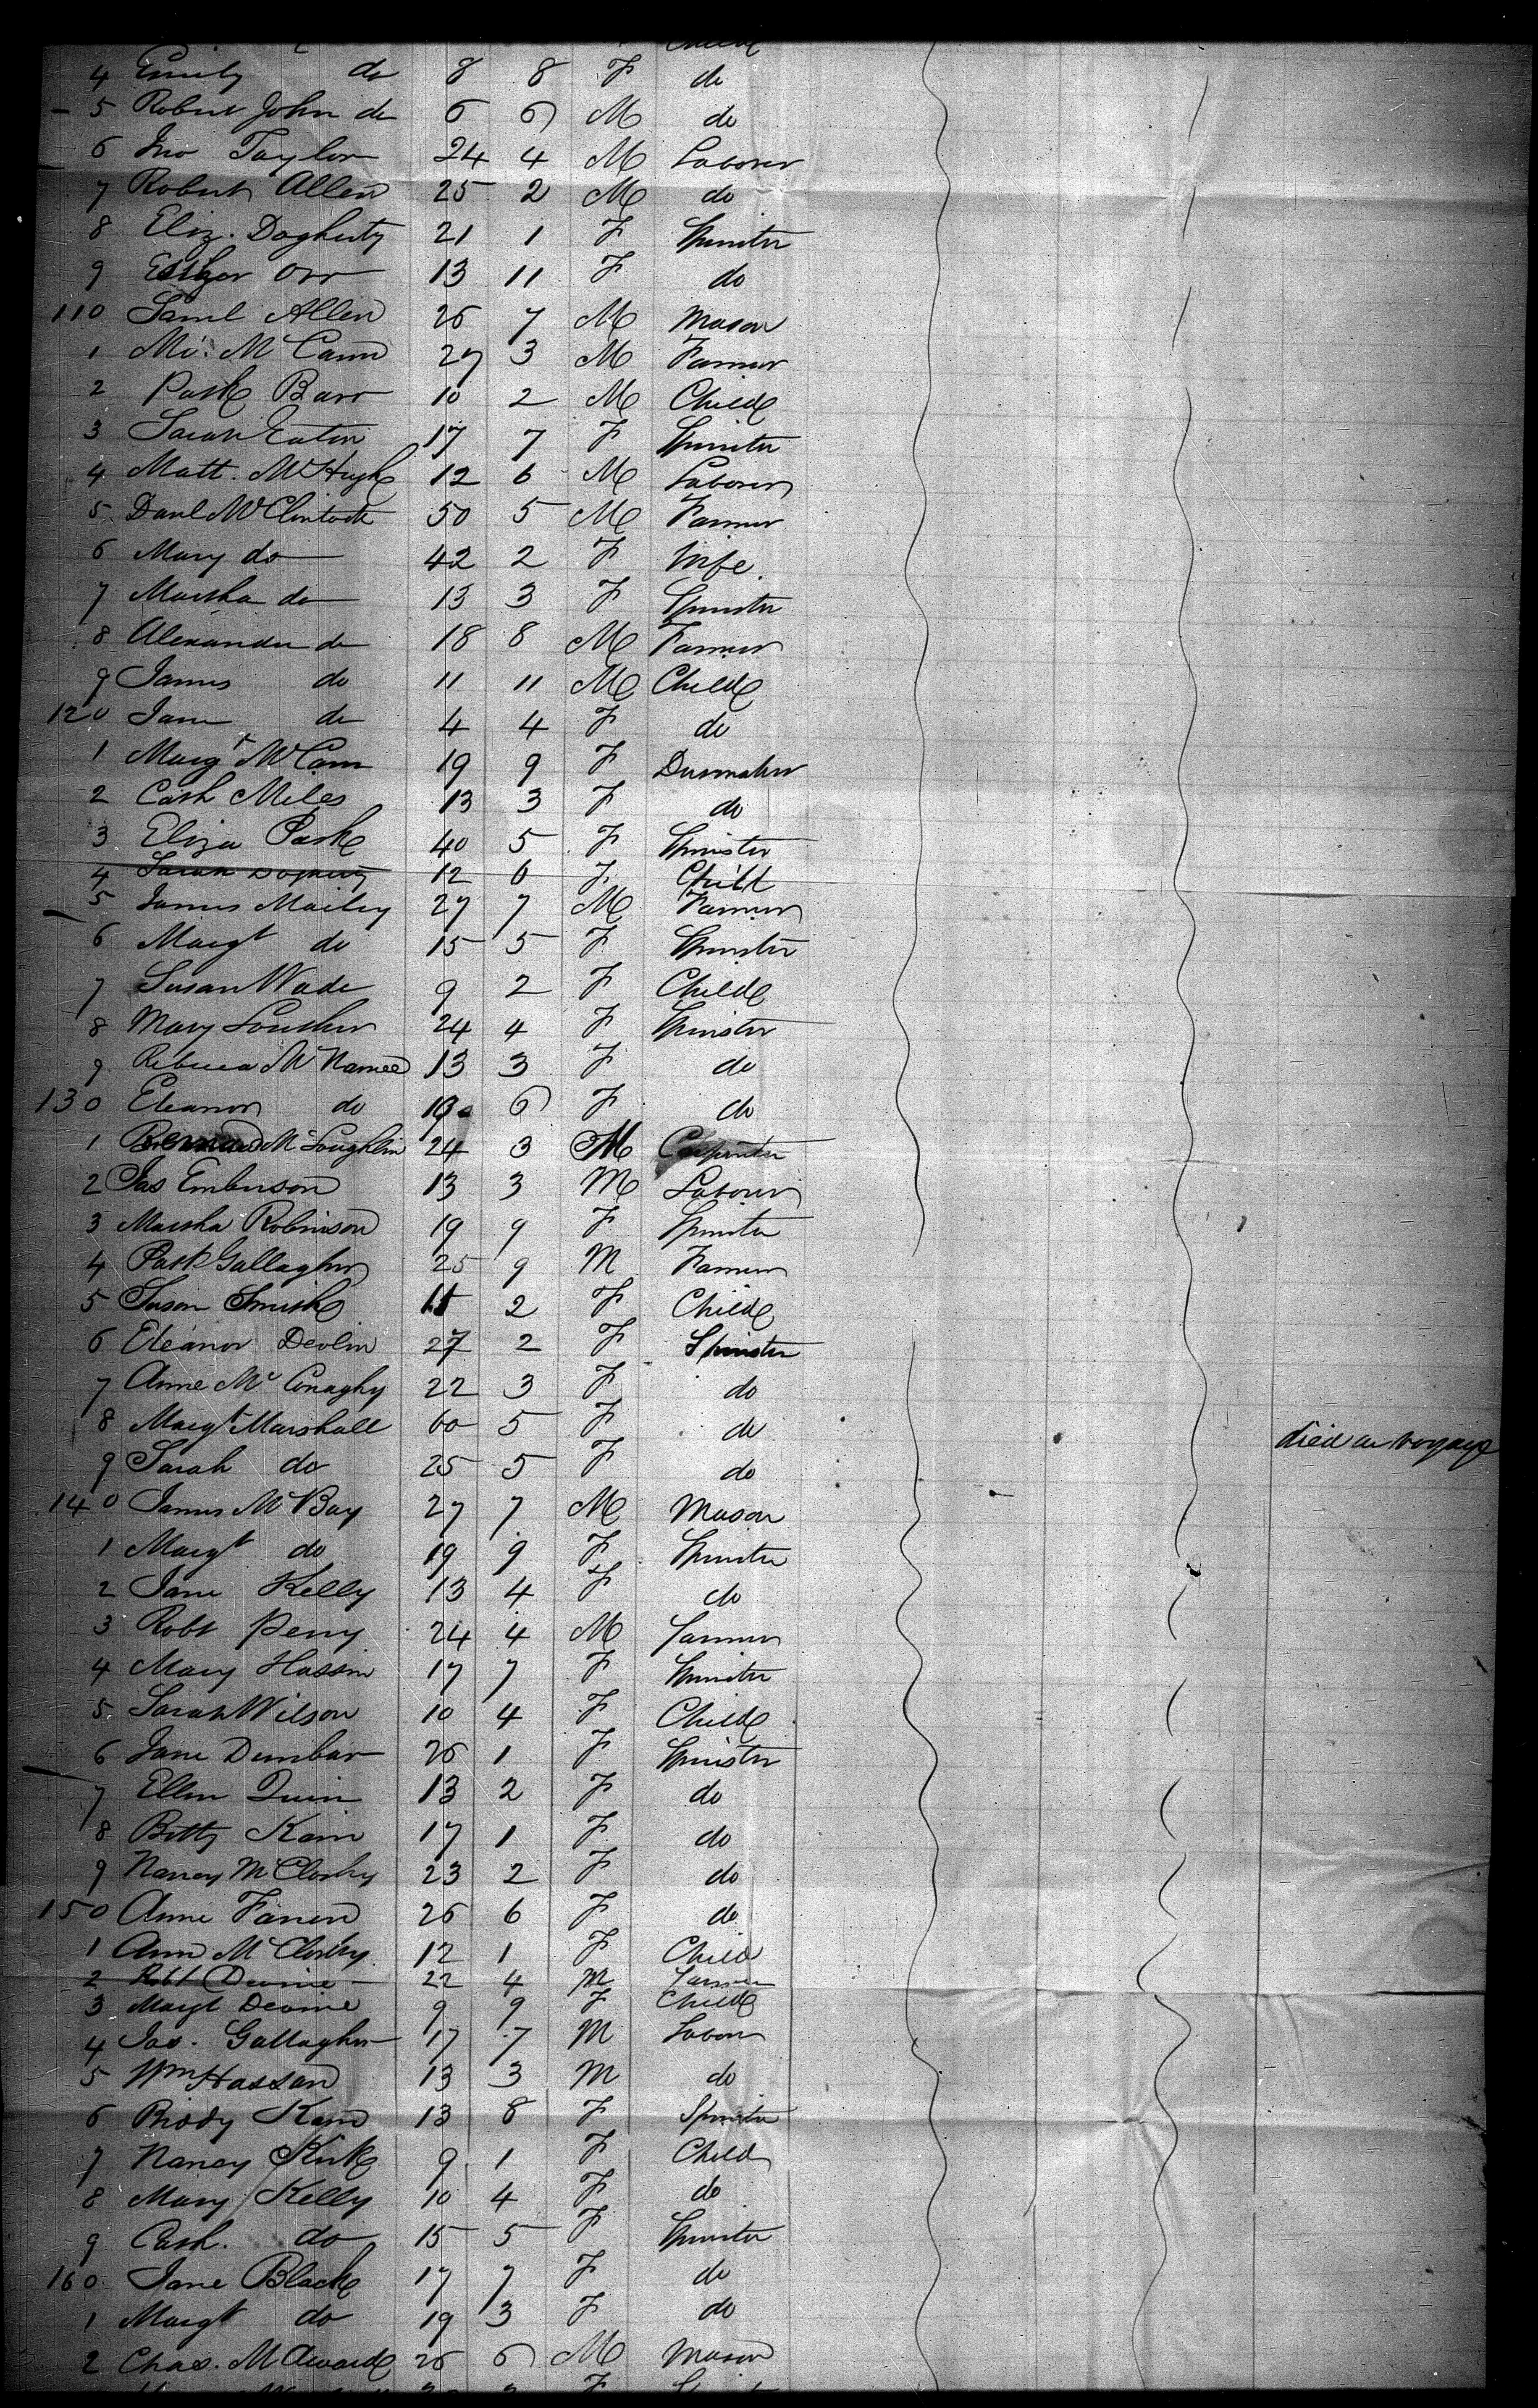 4 Emily do 8 8 F do
5 Robert John do 6 6 M do
6 Jno Taylor 24 4 M Laborer
7 Robert Allen 25 2 M do
8 Eliz. Dogherty 21 1 F Spinster
9 Esther Orr 13 11 F do
110 Saml Allen 26 7 M Mason
1 Mi. McCann 27 3 M Farmer
2 Patk Barr 10 2 M Child
3 Sarah Eaton 17 7 F Spinster
4 Matt. McHugh 12 6 M Laborer
5 Danl McClintock 50 5 M Farmer
6 Mary do 42 2 F Wife
7 Martha do 13 3 F Spinster
8 Alexander do 18 8 M Farmer
9 James do 11 11 M Child
120 Jane do 4 4 F do
1 Margt McCann 19 9 F
2 Cath Miles 13 3 F do
3 Eliza Park 40 5 F Spinster
4 Sarah Dogherty 12 6 F Child
5 James Mailey 27 7 M Farmer
6 Margt do 15 5 F Spinster
7 Susan Wade 9 2 F Child
8 Mary 24 4 F Spinster
9 Rebecca McNamee 13 3 F do
130 Eleanor do 6 F do
1 Bernard McLoughlin 24 3 M Carpenter
2 Jas Emberson 13 3 M Laborer
3 Martha Robinson 19 9 F Spinster
4 Patk Gallagher 25 9 M Farmer
5 Susan Smith 11 2 F Child
6 Eleanor Devlin 27 2 F Spinster
7 Anne McConaghy 22 3 F do
8 Margt Marshall 60 5 F do died on voyage
9 Sarah do 25 5 F do
140 James McBay 27 7 M Mason
1 Margt do 19 9 F Spinster
2 Jane Kelly 13 4 F do
3 Robt Perry 24 4 M Farmer
4 Mary Hassin 17 7 F Spinster
5 Sarah Wilson 10 4 F Child
6 Jane Dunbar 26 1 F Spinster
7 Ellen Quin 13 2 F do
8 Betty Kain 17 1 F do
9 Nancy McClosky 23 2 F do
150 Anne Farren 26 6 F do
1 Ann McClosky 12 1 F Child
2 Robt Devine 22 4 M Farmer
3 Margt Devine 9 9 F Child
4 Jas. Gallagher 17 7 M Labour
5 Wm Hassan 13 3 M do
6 Biddy Kain 13 8 F Spinster
7 Nancy Kirk 9 1 F Child
8 Mary Kelly 10 4 F do
9 Cath. do 15 5 F Spinster
160 Jane Black 17 7 F do
1 Margt do 19 3 F do
2 Chas. McAward 26 6 M Mason